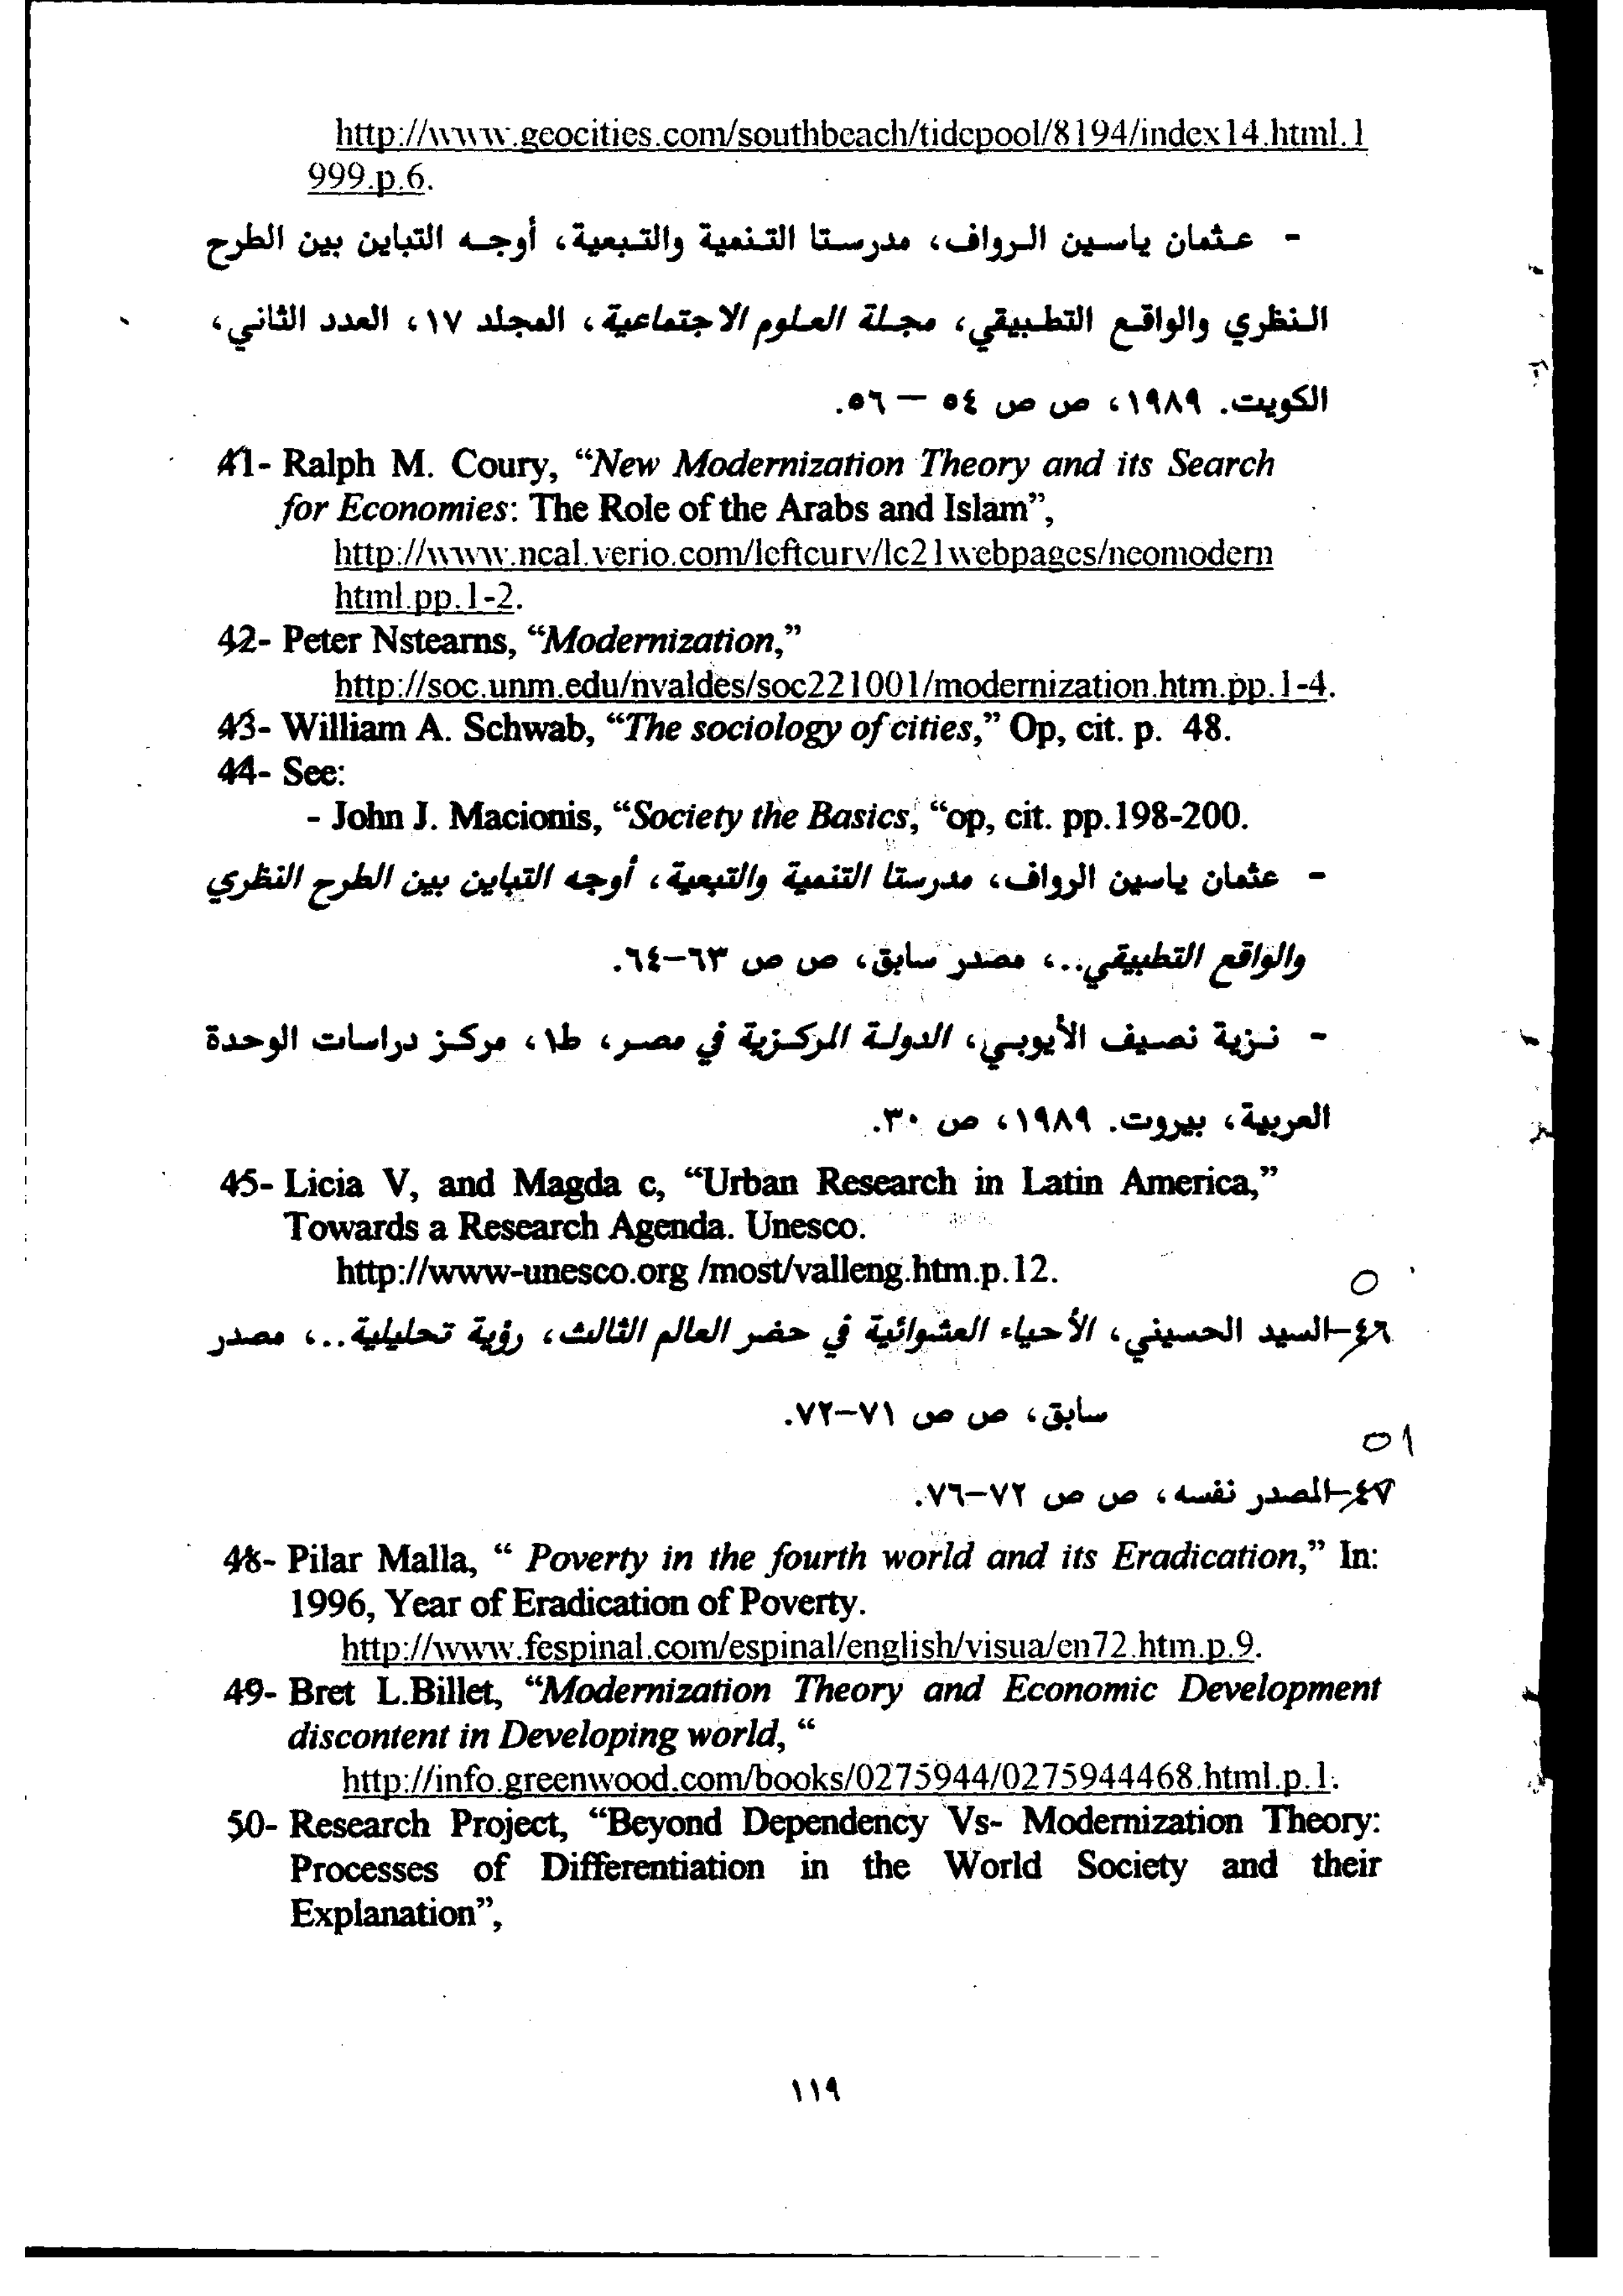 http://www.geocities.com/southbeach/tidepool/8194/index14.html.1
999.p.6.
- عثمان ياسين الرواف، مدرستا التنمية والتبعية، أوجه التباين بين الطرح
النظري والواقع التطبيقي، مجلة العلوم الاجتماعية، المجلد ١٧، العدد الثاني،
الكويت. ١٩٨٩، ص ص ٥٤ – ٥٦.
41- Ralph M. Coury, “New Modernization Theory and its Search
for Economies: The Role of the Arabs and Islam”,
http://www.ncal.verio.com/leftcurv/lc21webpages/neomodern
html.pp.1-2.
42- Peter Nstearns, “Modernization,”
http://soc.unm.edu/nvaldes/soc221001/modernization.htm.pp.1-4.
43- William A. Schwab, “The sociology of cities,” Op, cit. p. 48.
44- See:
- John J. Macionis, “Society the Basics, “op, cit. pp.198-200.
- عثمان ياسين الرواف، مدرستا التنمية والتبعية، أوجه التباين بين الطرح النظري
والواقع التطبيقي..، مصدر سابق، ص ص ٦٣–٦٤.
- نزية نصيف الأيوبي، الدولة المركزية في مصر، ط١، مركز دراسات الوحدة
العربية، بيروت. ١٩٨٩، ص ٣٠.
45- Licia V, and Magda c, “Urban Research in Latin America,”
Towards a Research Agenda. Unesco.
http://www-unesco.org /most/valleng.htm.p.12.
٥٠
٤٦–السيد الحسيني، الأحياء العشوائية في حضر العالم الثالث، رؤية تحليلية..، مصدر
سابق، ص ص ٧١–٧٢.
٥١
٤٧–المصدر نفسه، ص ص ٧٢–٧٦.
48- Pilar Malla, “ Poverty in the fourth world and its Eradication,” In:
1996, Year of Eradication of Poverty.
http://www.fespinal.com/espinal/english/visua/en72.htm.p.9.
49- Bret L.Billet, “Modernization Theory and Economic Development
discontent in Developing world, “
http://info.greenwood.com/books/0275944/0275944468.html.p.1.
50- Research Project, “Beyond Dependency Vs- Modernization Theory:
Processes of Differentiation in the World Society and their
Explanation”,
١١٩